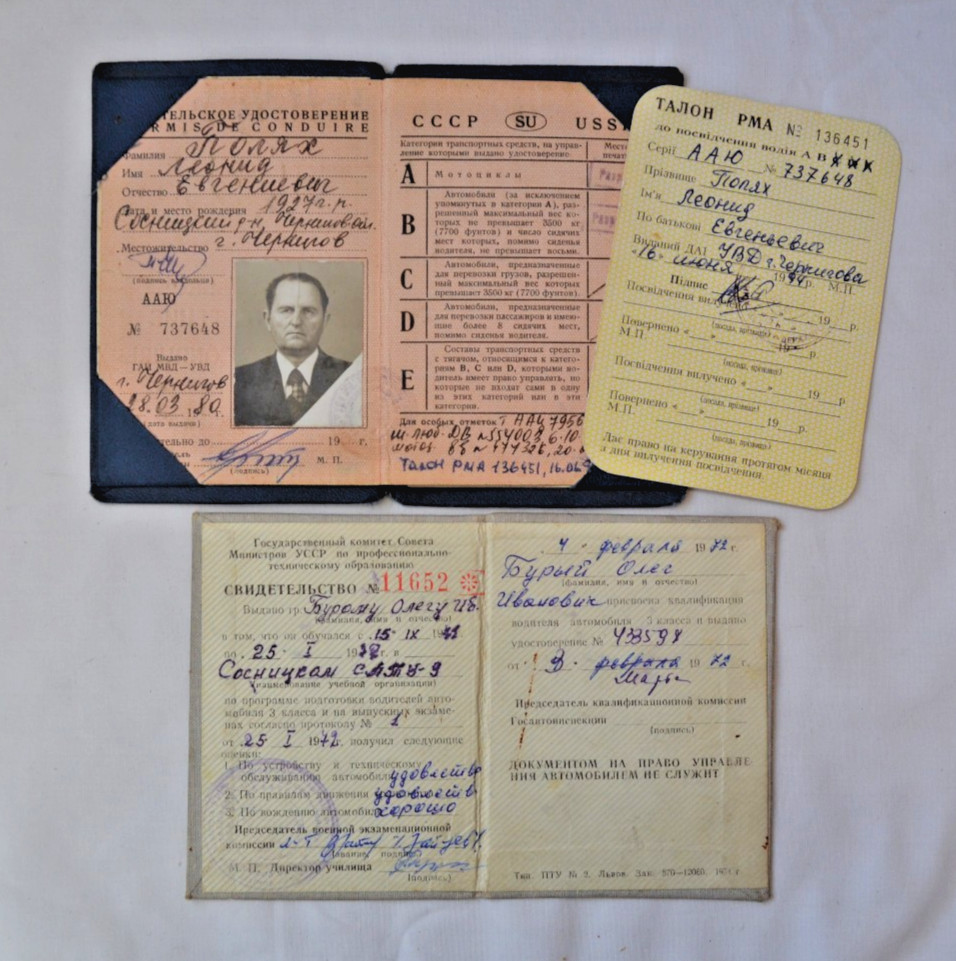 ТЕЛЬСКОЕ УДОСТОВЕРЕНИЕ
RMIS DE CONDUIRE
Фамилия Полях
Имя Леонид
Отчество Евгениевич
Дата и место рождения 1927 г.р.
Сосницкий р-н Черниговск.
г. Чернигов
Местожительство
(подпись владельца)
ААЮ
№ 737648
Выдано
ГАИ МВД—УВД
г. Чернигов
28.03 1980 г.
(дата выдачи)
тельно до 19 г.
М. П.
(подпись)
СССР SU USS
Категории транспортных средств, на управ-
ление которыми выдано удостоверение
Место
печати
A Мотоциклы
Разр
B Автомобили (за исключением
упомянутых в категории А), раз-
решенный максимальный вес ко-
торых не превышает 3500 кг
(7700 фунтов) и число сидячих
мест которых, помимо сиденья
водителя, не превышает восьми.
Разр
C Автомобили, предназначенные
для перевозки грузов, разрешен-
ный максимальный вес которых
превышает 3500 кг (7700 фунтов).
D Автомобили, предназначенные
для перевозки пассажиров и имею-
щие более 8 сидячих мест,
помимо сиденья водителя.
E Составы транспортных средств
с тягачом, относящимся к катего-
риям В, С или D, которыми во-
дитель имеет право управлять, но
которые не входят сами в одну
из этих категорий или в эти
категории.
Для особых отметок т ААИ 7956
Талон РМА 136451, 16.06.9
ТАЛОН РМА № 136451
до посвідчення водія А В
Серії ААЮ № 737648
Прізвище Полях
Ім'я Леонид
По батькові Евгеньевич
Виданий ДАІ УВД г. Чернигова
"16" июня 1994 р. М. П.
Підпис
Посвідчення вилучено 19 р.
(посада, прізвище)
Повернено « » 19 р.
М.П.
(посада, прізвище)
Посвідчення вилучено « » 19 р.
(посада, прізвище)
Повернено « » 19 р.
М.П.
(посада, прізвище)
Дає право на керування протягом місяця
з дня вилучення посвідчення.
Государственный комитет Совета
Министров УССР по профессионально-
техническому образованию
СВИДЕТЕЛЬСТВО № 11652
Выдано гр. Бурому Олегу Ив.
(фамилия, имя и отчество)
в том, что он обучался с 15 IX 1971
по 25 I 1972 г. в
Сосницком СПТУ-9
(наименование учебной организации)
по программе подготовки водителей авто-
мобиля 3 класса и на выпускных экзаме-
нах согласно протоколу № 1
от 25 I 1972 г. получил следующие
оценки:
1. По устройству и техническому
обслуживанию автомобиля удовлетво
2. По правилам движения удовлетв
3. По вождению автомобиля хорошо
Председатель военной экзаменационной
комиссии л-т
(звание, подпись)
М. П. Директор училища
(подпись)
"4" февраля 1972 г.
Бурый Олег
(фамилия, имя и отчество)
Иванович присвоена квалификация
водителя автомобиля 3 класса и выдано
удостоверение № 433598
от февраля 1972 г.
Марта
Председатель квалификационной комиссии
Госавтоинспекции
(подпись)
ДОКУМЕНТОМ НА ПРАВО УПРАВЛЕ-
НИЯ АВТОМОБИЛЕМ НЕ СЛУЖИТ
Тип. ПТУ № 2. Львов. Зак. 570—12000. 1971 г.